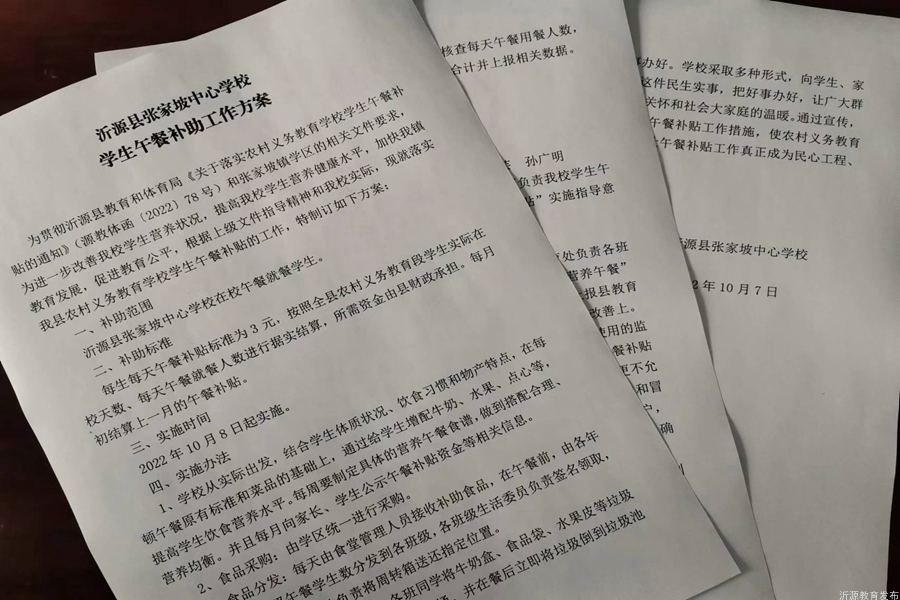 沂源县张家坡中心学校
学生午餐补助工作方案
为贯彻沂源县教育和体育局《关于落实农村义务教育学校学生午餐补
贴的通知》（源教体函〔2022〕78号）和张家坡镇学区的相关文件要求，
为进一步改善我校学生营养状况，提高我校学生营养健康水平，加快我镇
教育发展，促进教育公平，根据上级文件指导精神和我校实际，现就落实
我县农村义务教育学校学生午餐补贴的工作，特制订如下方案：
一、补助范围
沂源县张家坡中心学校在校午餐就餐学生。
二、补助标准
每生每天午餐补贴标准为3元，按照全县农村义务教育段学生实际在
校天数、每天午餐就餐人数进行据实结算，所需资金由县财政承担。每月
初结算上一月的午餐补贴。
三、实施时间
2022年10月8日起实施。
四、实施办法
1、学校从实际出发，结合学生体质状况、饮食习惯和物产特点，在每
顿午餐原有标准和菜品的基础上，通过给学生增配牛奶、水果、点心等，
提高学生饮食营养水平。每周要制定具体的营养午餐食谱，做到搭配合理、
营养均衡。并且每月向家长、学生公示午餐补贴资金等相关信息。
2、食品采购：由学区统一进行采购。
食品分发：每天由食堂管理人员接收补助食品，在午餐前，由各年
午餐学生数分发到各班级，各班级生活委员负责签名领取，
负责将周转箱送还指定位置。
各班同学将牛奶盒、食品袋、水果皮等垃圾
，并在餐后立即将垃圾倒到垃圾池
核查每天午餐用餐人数，
合计并上报相关数据。
孙广明
负责我校学生午
”实施指导意
处负责各班
营养午餐”
报县教育
改善上。
使用的监
餐补贴
更不允
和冒
户，
确
办好。学校采取多种形式，向学生、家
这件民生实事，把好事办好，让广大群
关怀和社会大家庭的温暖。通过宣传，
午餐补贴工作措施，使农村义务教育
午餐补贴工作真正成为民心工程、
沂源县张家坡中心学校
2年10月7日
沂源教育发布